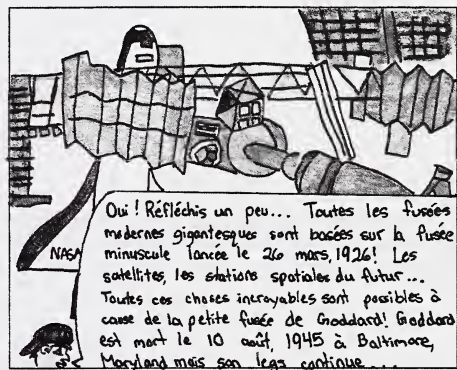 NASA
Oui ! Réfléchis un peu... Toutes les fusées
modernes gigantesques sont basées sur la fusée
minuscule lancée le 26 mars, 1926! Les
satellites, les stations spatiales du futur...
Toutes ces choses incroyables sont possibles à
cause de la petite fusée de Goddard! Goddard
est mort le 10 août, 1945 à Baltimore,
Maryland mais son legs continue...